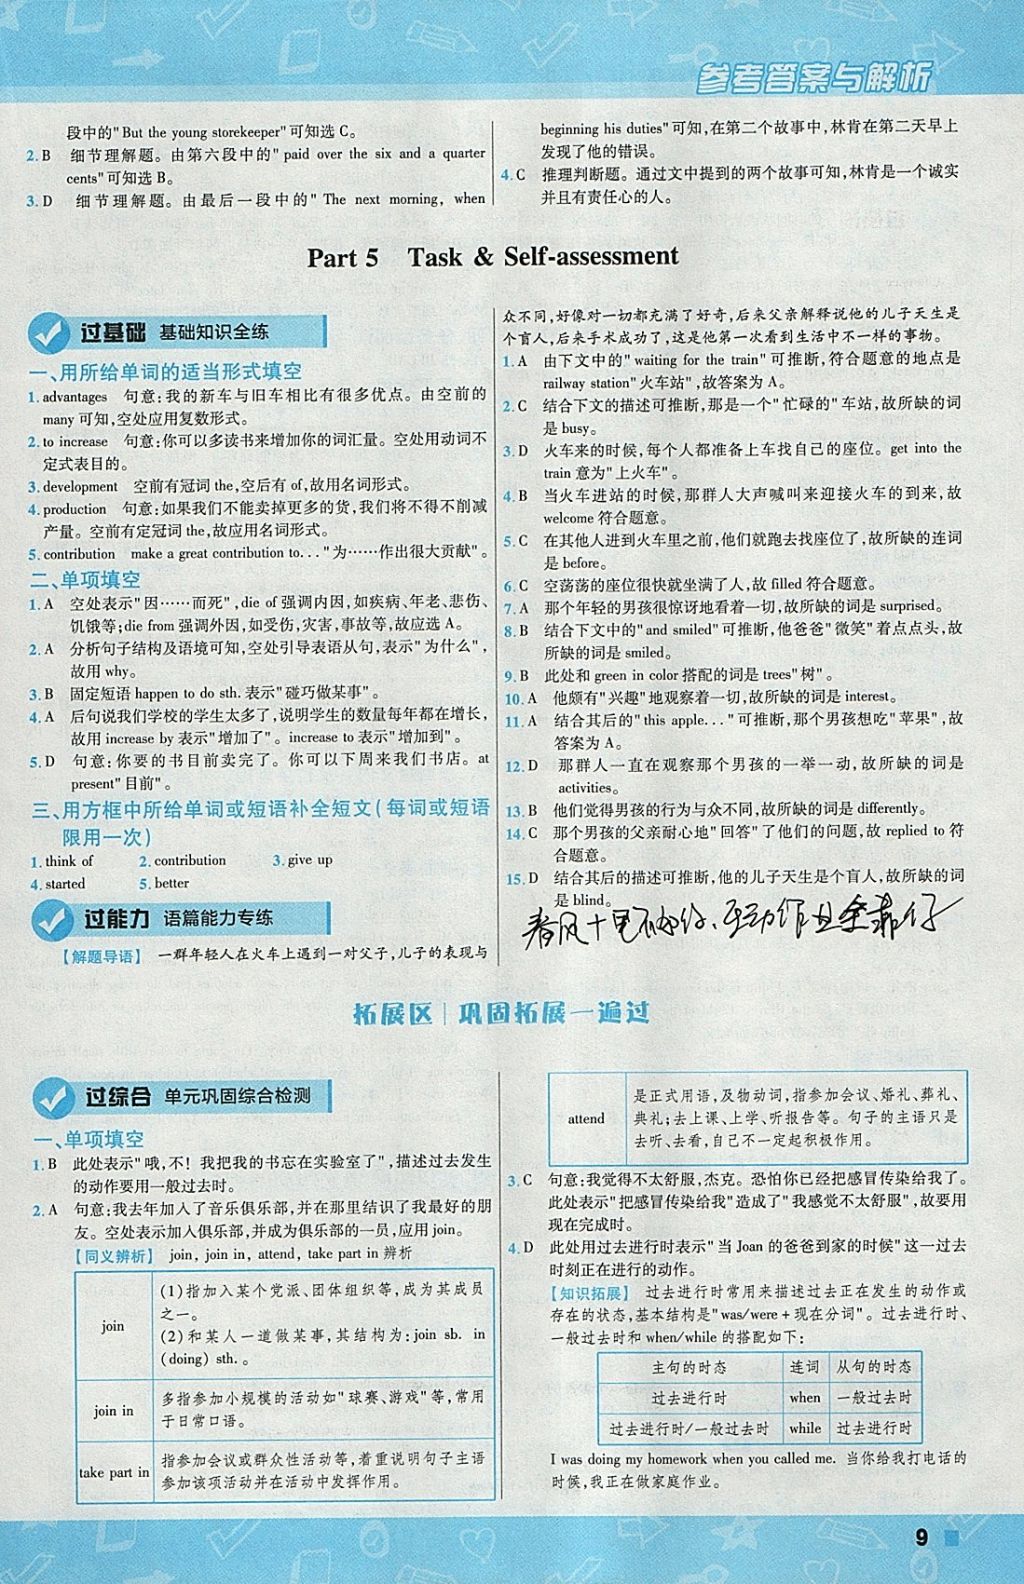 参考答案与解析
段中的"But the young storekeeper"可知选C。
2.B 细节理解题。由第六段中的"paid over the six and a quarter
cents"可知选B。
3.D 细节理解题。由最后一段中的"The next morning, when
beginning his duties"可知,在第二个故事中,林肯在第二天早上
发现了他的错误。
4.C 推理判断题。通过文中提到的两个故事可知,林肯是一个诚实
并且有责任心的人。
Part 5 Task & Self-assessment
过基础 基础知识全练
一、用所给单词的适当形式填空
1.advantages 句意:我的新车与旧车相比有很多优点。由空前的
many可知,空处应用复数形式。
2.to increase 句意:你可以多读书来增加你的词汇量。空处用动词不
定式表目的。
3.development 空前有冠词the,空后有of,故用名词形式。
4.production 句意:如果我们不能卖掉更多的货,我们将不得不削减
产量。空前有定冠词the,故应用名词形式。
5.contribution make a great contribution to..."为……作出很大贡献"。
二、单项填空
1.A 空处表示"因……而死",die of强调内因,如疾病、年老、悲伤、
饥饿等;die from强调外因,如受伤,灾害,事故等,故应选A。
2.A 分析句子结构及语境可知,空处引导表语从句,表示"为什么",
故用why。
3.B 固定短语happen to do sth.表示"碰巧做某事"。
4.A 后句说我们学校的学生太多了,说明学生的数量每年都在增长,
故用increase by表示"增加了"。increase to表示"增加到"。
5.D 句意:你要的书目前卖完了。你可以下周来我们书店。at
present"目前"。
三、用方框中所给单词或短语补全短文(每词或短语
限用一次)
1.think of 2.contribution 3.give up
4.started 5.better
过能力 语篇能力专练
【解题导语】 一群年轻人在火车上遇到一对父子,儿子的表现与
众不同,好像对一切都充满了好奇,后来父亲解释说他的儿子天生是
个盲人,后来手术成功了,这是他第一次看到生活中不一样的事物。
1.A 由下文中的"waiting for the train"可推断,符合题意的地点是
railway station"火车站",故答案为A。
2.C 结合下文的描述可推断,那是一个"忙碌的"车站,故所缺的词
是busy。
3.D 火车来的时候,每个人都准备上车找自己的座位。get into the
train意为"上火车"。
4.B 当火车进站的时候,那群人大声喊叫来迎接火车的到来,故
welcome符合题意。
5.C 在其他人进到火车里之前,他们就跑去找座位了,故所缺的连词
是before。
6.C 空荡荡的座位很快就坐满了人,故filled符合题意。
7.A 那个年轻的男孩很惊讶地看着一切,故所缺的词是surprised。
8.B 结合下文中的"and smiled"可推断,他爸爸"微笑"着点点头,故
所缺的词是smiled。
9.B 此处和green in color搭配的词是trees"树"。
10.A 他颇有"兴趣"地观察着一切,故所缺的词是interest。
11.A 结合其后的"this apple..."可推断,那个男孩想吃"苹果",故
答案为A。
12.D 那群人一直在观察那个男孩的一举一动,故所缺的词是
activities。
13.B 他们觉得男孩的行为与众不同,故所缺的词是differently。
14.C 那个男孩的父亲耐心地"回答"了他们的问题,故replied to符
合题意。
15.D 结合其后的描述可推断,他的儿子天生是个盲人,故所缺的词
是blind。
春风十里不如你、
拓展区 巩固拓展一遍过
过综合 单元巩固综合检测
一、单项填空
1.B 此处表示"哦,不!我把我的书忘在实验室了",描述过去发生
的动作要用一般过去时。
2.A 句意:我去年加入了音乐俱乐部,并在那里结识了我最好的朋
友。空处表示加入俱乐部,并成为俱乐部的一员,应用join。
【同义辨析】 join, join in, attend, take part in辨析
join
(1)指加入某个党派、团体组织等,成为其成员
之一。
(2)和某人一道做某事,其结构为:join sb. in
(doing) sth.。
join in
多指参加小规模的活动如"球赛、游戏"等,常用
于日常口语。
take part in
指参加会议或群众性活动等,着重说明句子主语
参加该项活动并在活动中发挥作用。
attend
是正式用语,及物动词,指参加会议、婚礼、葬礼、
典礼;去上课、上学、听报告等。句子的主语只是
去听、去看,自己不一定起积极作用。
3.C 句意:我觉得不太舒服,杰克。恐怕你已经把感冒传染给我了。
此处表示"把感冒传染给我"造成了"我感觉不太舒服",故要用
现在完成时。
4.D 此处用过去进行时表示"当Joan的爸爸到家的时候"这一过去
时刻正在进行的动作。
【知识拓展】 过去进行时常用来描述过去正在发生的动作或
存在的状态,基本结构是"was/were+现在分词"。过去进行时、
一般过去时和when/while的搭配如下:
主句的时态 连词 从句的时态
过去进行时 when 一般过去时
过去进行时/一般过去时 while 过去进行时
I was doing my homework when you called me. 当你给我打电话的
时候,我正在做家庭作业。
9